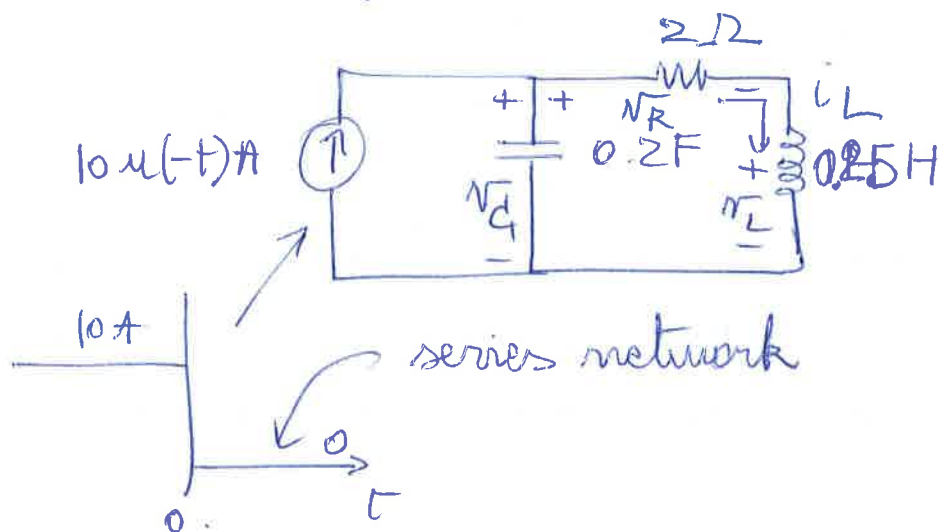 2Ω
+ + v_R − i_L
10u(-t)A 0.2F + 0.25H
v_C v_L
− −
10A
series network
0
0. t